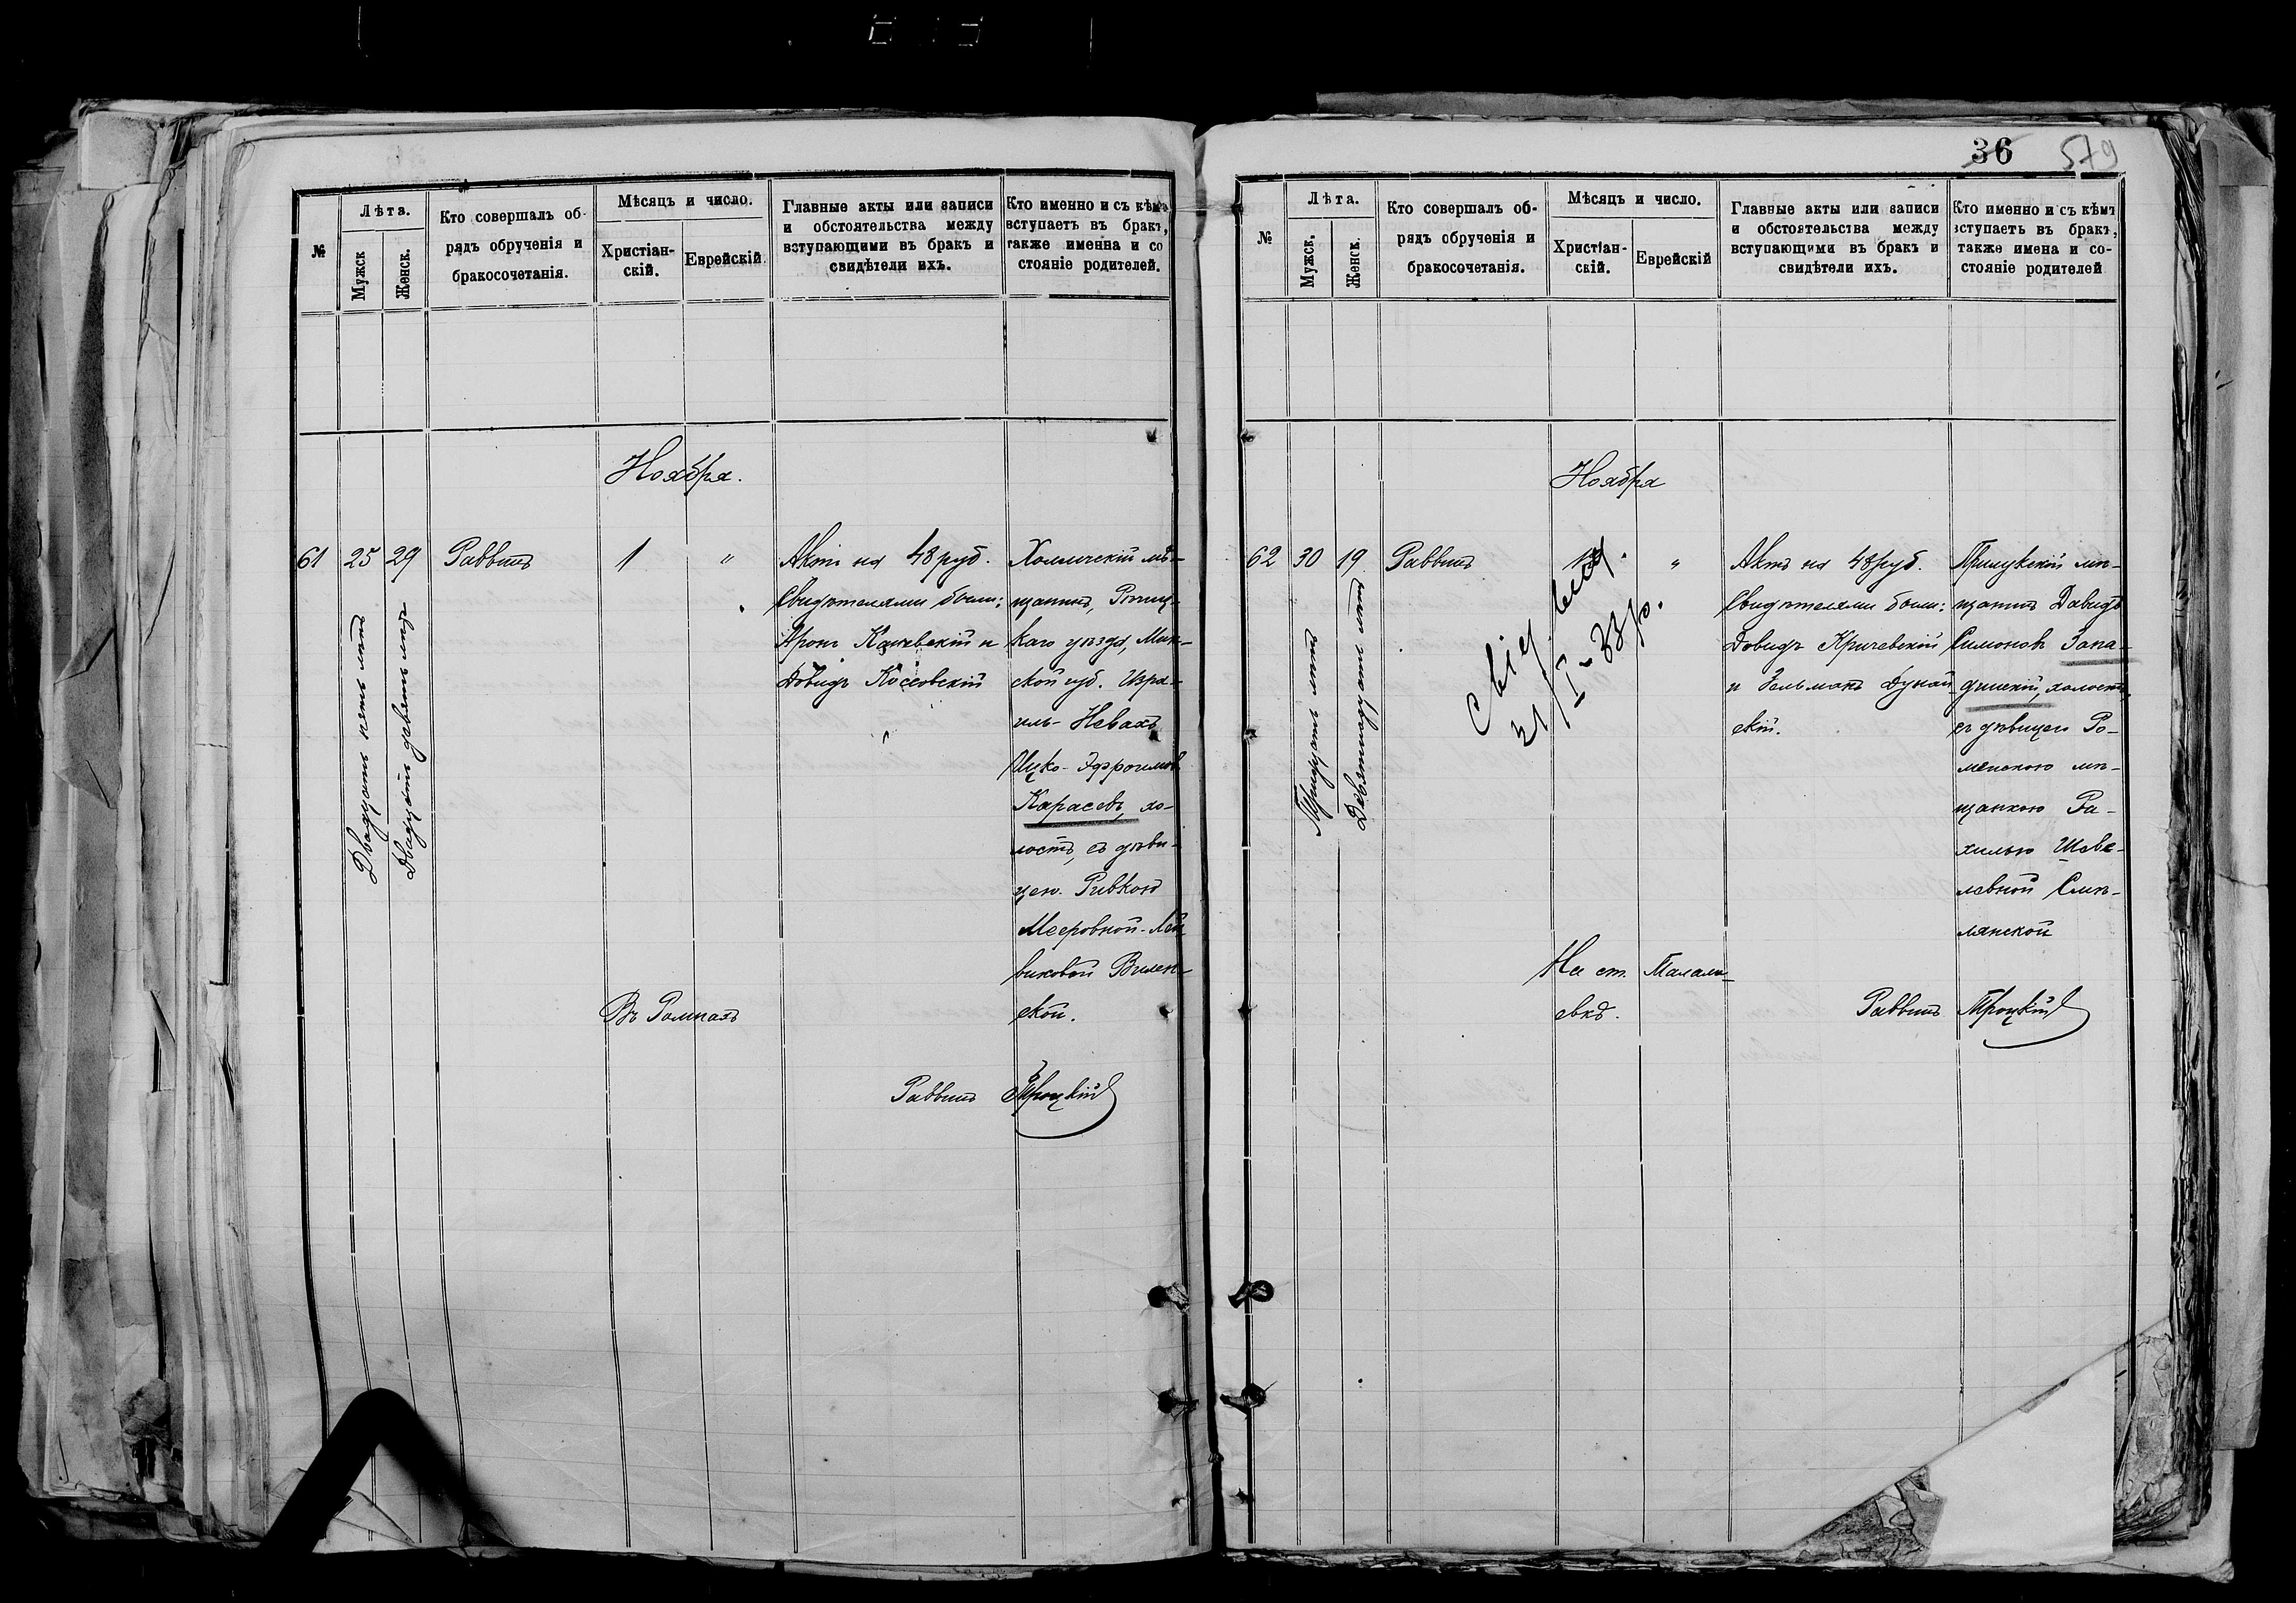 №
Лѣта.
Мужск
Женск.
Кто совершалъ об-
рядъ обрученія и
бракосочетанія.
Мѣсяцъ и число.
Христіан-
скій.
Еврейскій.
Главные акты или записи
и обстоятельства между
вступающими въ бракъ и
свидѣтели ихъ.
Кто именно и съ кѣмъ
вступаетъ въ бракъ,
также именна и со
стояніе родителей.
Ноября.
61 25 29 Раввинъ 1 "
Двадцать пять лѣтъ
Двадцать девять лѣтъ
Актъ на 48 руб.
Свидѣтелями были:
Аронъ Каневскій и
Довидъ Коссовскій
Холмечскій мѣ-
щанинъ, Рѣчиц-
каго уѣзда, Мин-
ской губ. Изра-
иль-Невахъ
Ицко-Эфроимовъ
Карасевъ, хо-
лостъ, съ дѣви-
цею Ривкою
Мееровной-Лей
виковой Вилен-
ской.
Въ Ромнахъ
Раввинъ Троцкій
36 579
№
Лѣта.
Мужск.
Женск.
Кто совершалъ об-
рядъ обрученія и
бракосочетанія.
Мѣсяцъ и число.
Христіан-
скій.
Еврейскій
Главные акты или записи
и обстоятельства между
вступающими въ бракъ и
свидѣтели ихъ.
Кто именно и съ кѣмъ
вступаетъ въ бракъ,
также имена и со-
стояніе родителей
Ноября
62 30 19 Раввинъ "
Тридцать лѣтъ
Девятнадцать лѣтъ
31/I-33 р.
Актъ на 48 руб.
Свидѣтелями были:
Довидъ Кричевскій
и Зельманъ Дунай
скій.
Прилукскій мѣ-
щанинъ Давидъ
Симоновъ Запа-
динскій, холостъ,
съ дѣвицею Ро-
менскою мѣ-
щанкою Ра-
хилью Шеве-
левной Смѣ-
лянской
На ст.
Раввинъ Троцкій